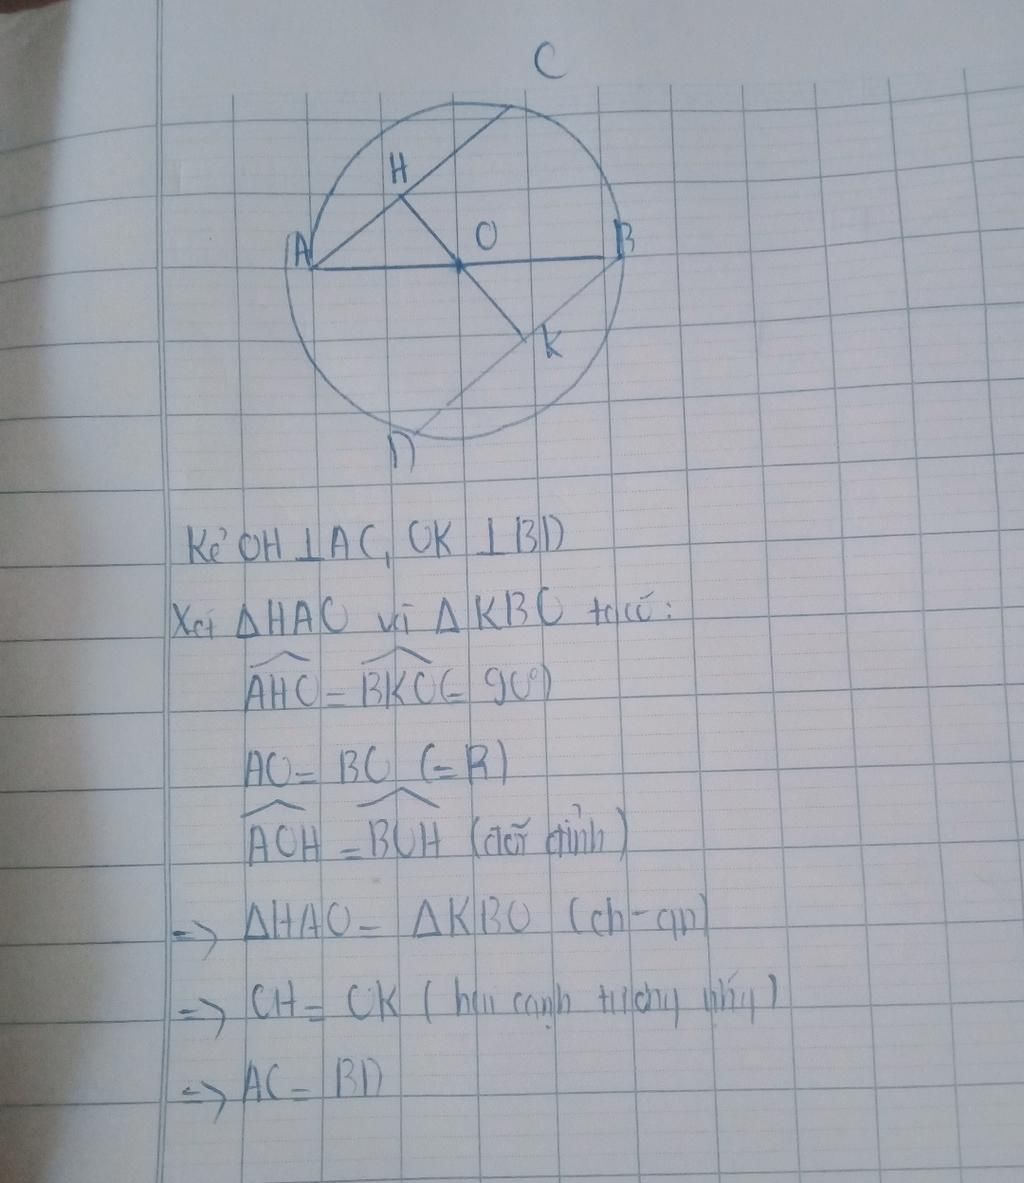 C
H
A
O
B
K
D
Kẻ OH ⊥ AC, OK ⊥ BD
Xét ΔHAO và ΔKBO ta có:
AHO = BKO (= 90°)
AO = BO (= R)
AOH = BOH (đối đỉnh)
=> ΔHAO = ΔKBO (ch-gn)
=> OH = OK (hai cạnh tương ứng)
=> AC = BD